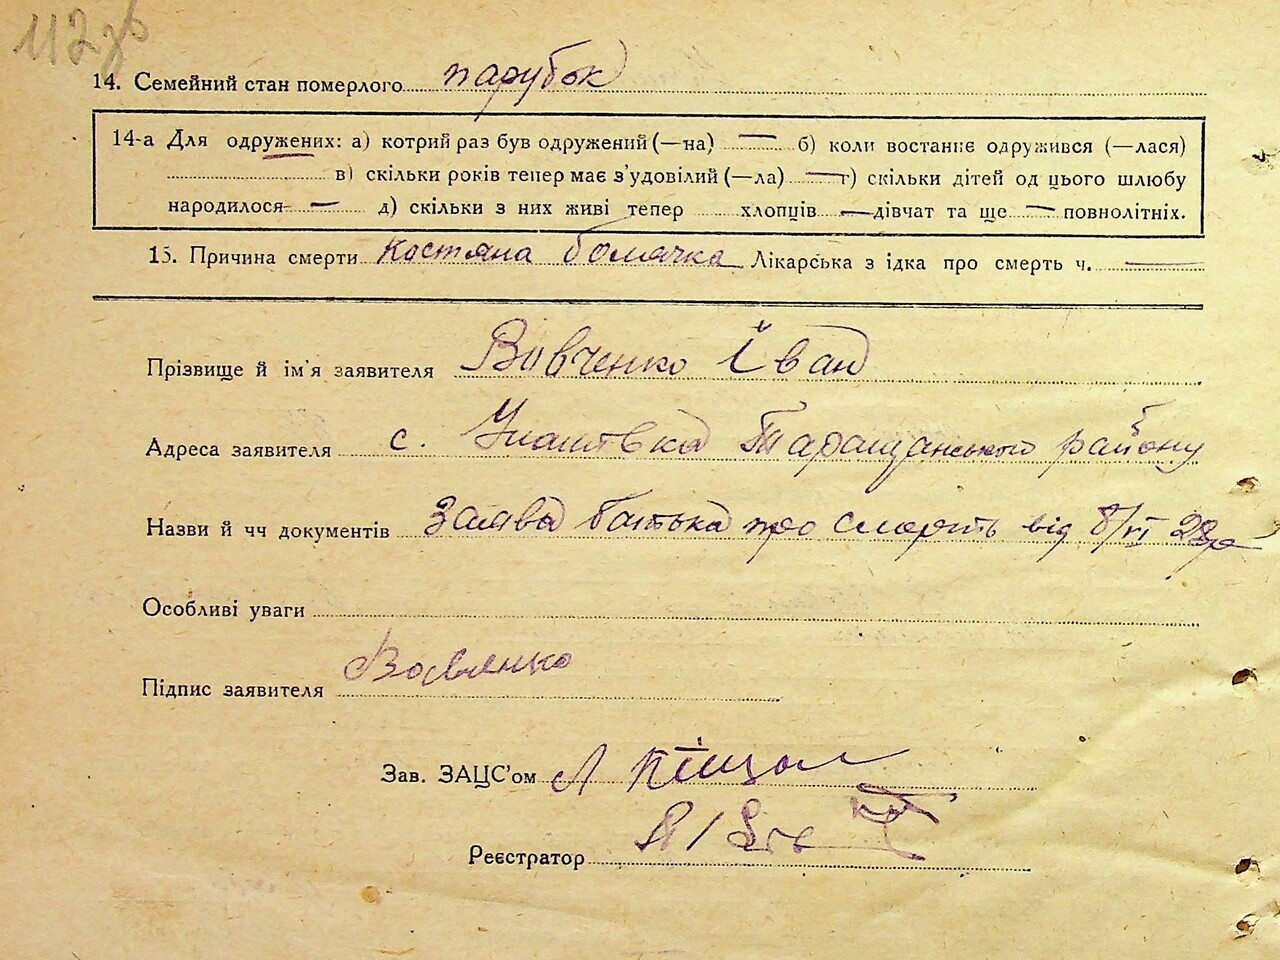 112 зв
14. Семейний стан померлого парубок
14-а Для одружених: а) котрий раз був одружений (—на) — б) коли востаннє одружився (—лася)
в) скільки років тепер має з'удовілий (—ла) — г) скільки дітей од цього шлюбу
народилося — д) скільки з них живі тепер хлопців — дівчат та ще — повнолітніх.
15. Причина смерти Костяна болячка Лікарська з ідка про смерть ч. —
Прізвище й ім'я заявителя Вовченко Іван
Адреса заявителя с. Таращанського району
Назви й чч документів Заява батька про смерть від 8/VI 28р
Особливі уваги
Підпис заявителя
Зав. ЗАЦС'ом
Реєстратор